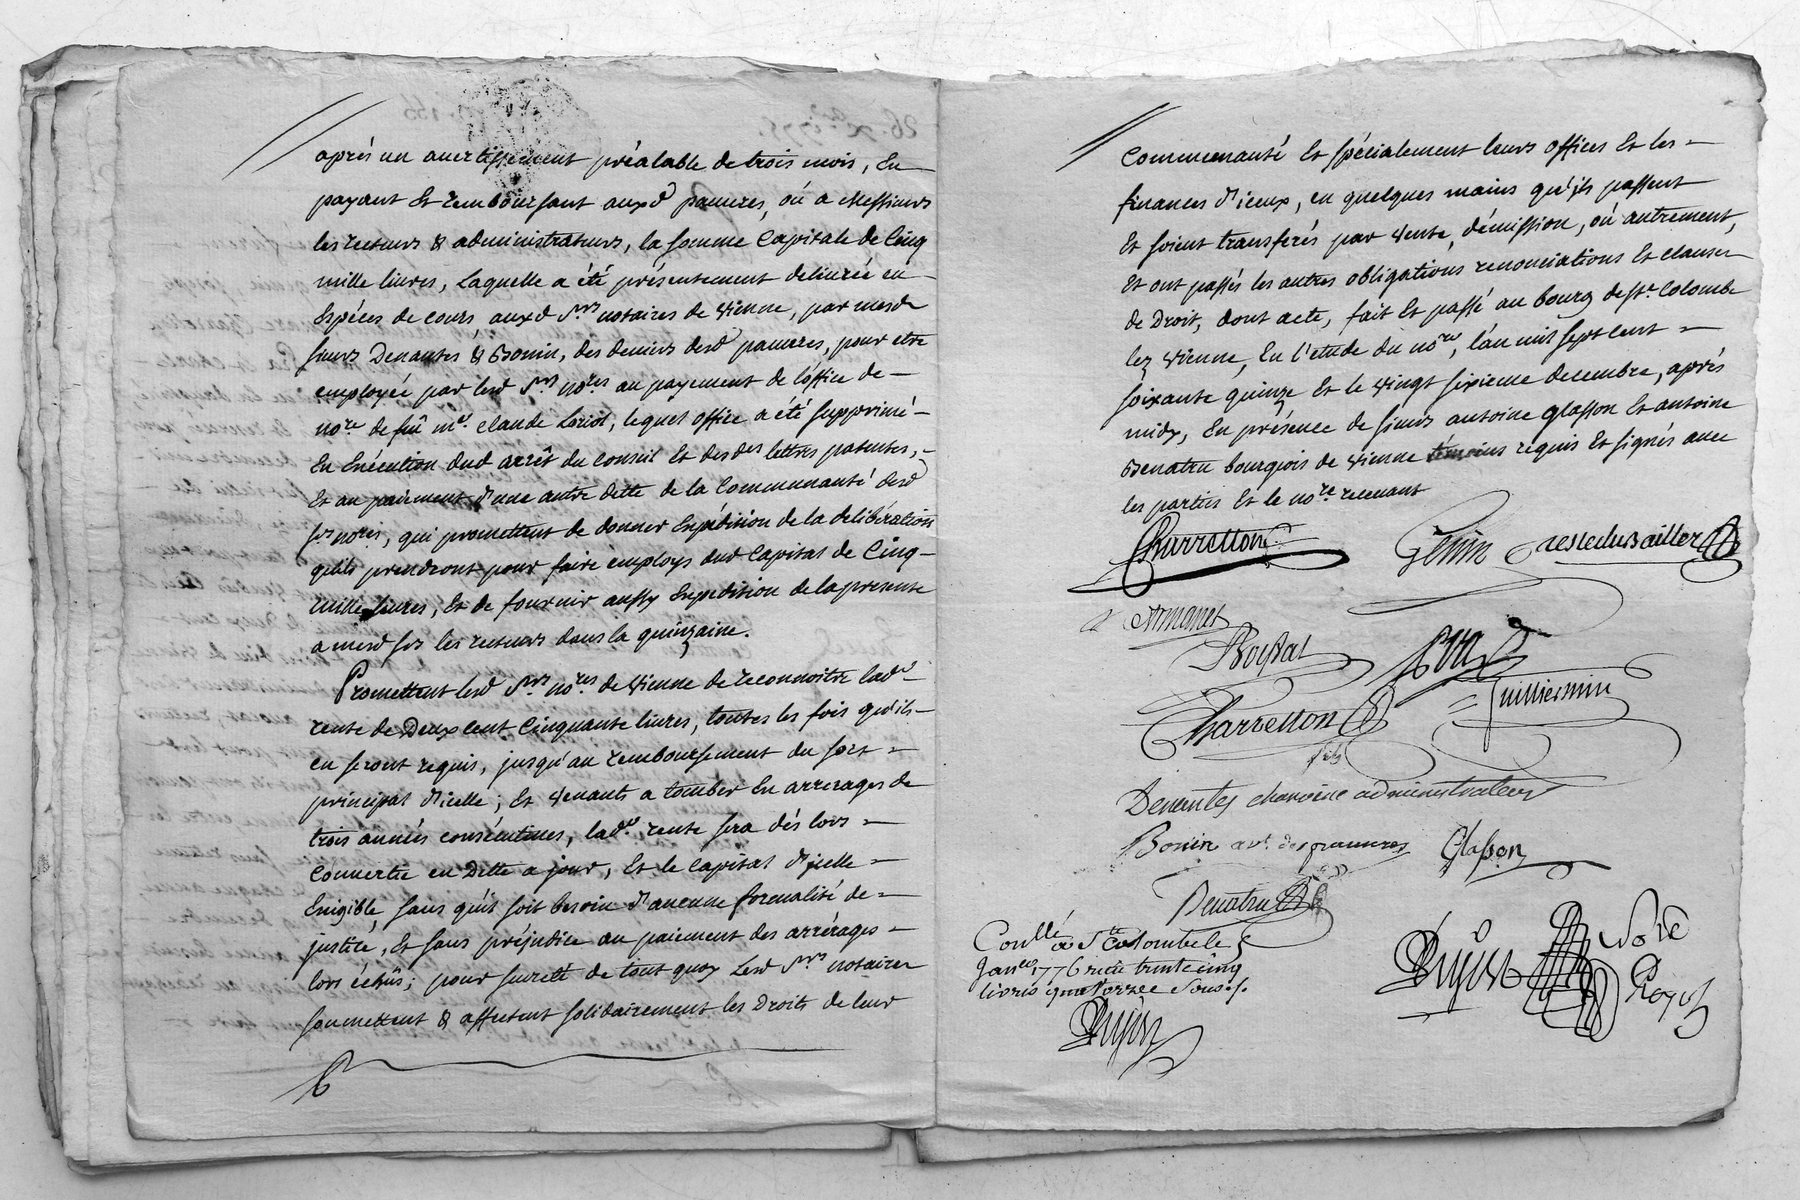 après un avertissement préalable de trois mois, En
payant Et remboursant auxd pauvres, où a Messieurs
les recteurs & administrateurs, la somme Capitale de Cinq
mille livres, Laquelle a été présentement delivrée en
Espéces de cours auxd Srs notaires de Vienne, par mesd
sieurs Denantes & Bonin, des deniers desd pauvres, pour etre
employée par lesd Srs nores au payement de l'office de
nore de feû me. claude Loriol, lequel office a été supprimé
En Exécution dud arrêt du Conseil Et desdes lettres patentes,
Et au paiement d'une autre dette de la Communauté desd
srs nores, qui promettent de donner Expédition de la deliberation
qu'ils prendront pour faire employs dud Capital de Cinq
mille livres, Et de fournir aussy Expedition de la presente
a mesd srs les recteurs dans la quinzaine.
Promettent lesd Srs nores de Vienne de reconnoitre lade
rente de Deux Cent Cinquante livres, toutes les fois qu'ils
en seront requis, jusqu'au remboursement du sort
principal d'icelle; Et Venants a tomber En arrerages de
trois années consécutives, lade rente sera dés lors
Convertie en Dette a jour, Et le Capital d'icelle
Exigible, sans qu'il soit besoin d'aucune formalité de
justice, Et sans préjudice au paiement des arrérages
lors échûs; pour sureté de tout quoy Lesd Srs notaires
soumettent & affectent solidairement les Droits de leur
Communauté Et spécialement leurs offices Et les
finances d'iceux, en quelques mains qu'ils passent
Et soient transferés par Vente, démission, où autrement,
Et ont passés les autres obligations renonciations Et clauses
de Droit, dont acte, fait Et passé au bourg de Ste. Colombe
lez Vienne, En l'etude du nore, l'an mil sept cent
soixante quinze Et le Vingt sixieme decembre, aprés
midy, En présence de sieurs antoine glasson Et antoine
Benatru bourgeois de Vienne témoins requis Et signés avec
les parties Et le nore recevant
Charretton
Genin
Teste du Bailler
Armanet
Boissat
Guilliermin
Charretton
fils
Denantes chanoine administrateur
Bonin avt. des pauvres
Glasson
Benatru
Conllé a Ste Colombe le 5
Janer. 1776 recu trente cinq
livres quatorze sous
Dujon
Dujon
Nore
Royal